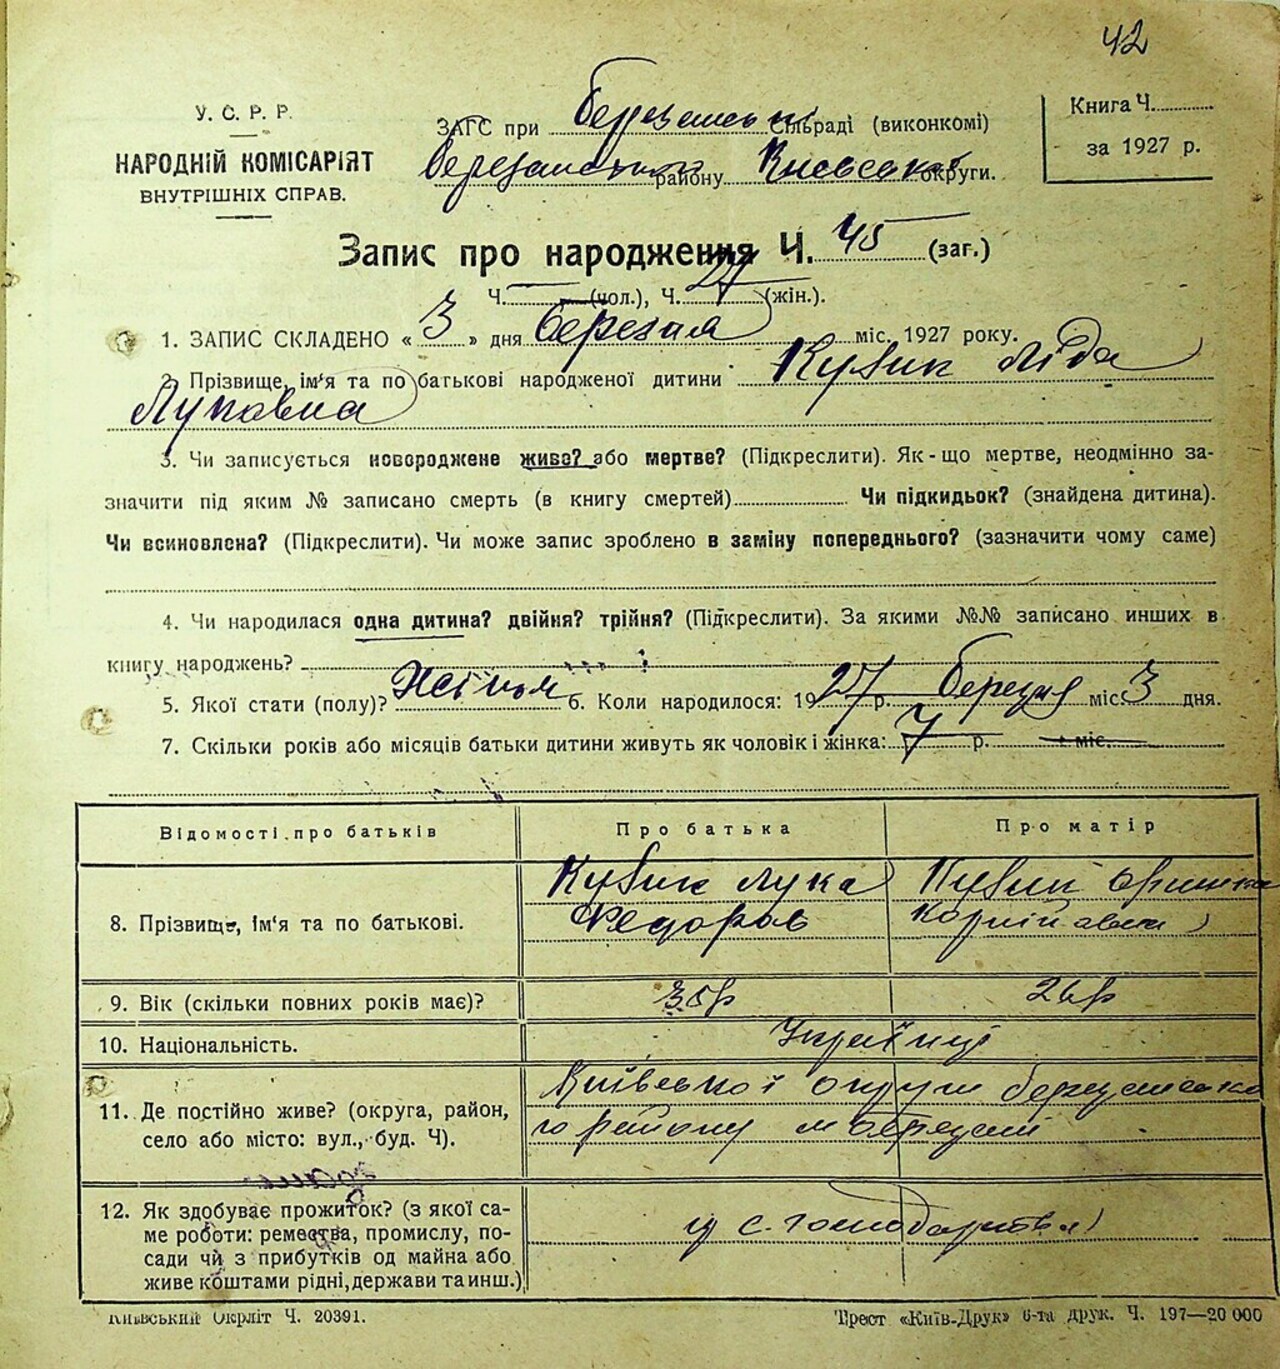 42
У. С. Р. Р.
НАРОДНІЙ КОМІСАРІЯТ
ВНУТРІШНІХ СПРАВ.
ЗАГС при Березанські сільраді (виконкомі)
Березанського району Київської округи.
Книга Ч.
за 1927 р.
Запис про народження Ч. 45 (заг.)
Ч. — (чол.), Ч. 27 (жін.).
1. ЗАПИС СКЛАДЕНО « 3 » дня березня міс. 1927 року.
2. Прізвище, ім'я та по батькові народженої дитини Кузик Ліда
Лукавна
3. Чи записується новороджене живе? або мертве? (Підкреслити). Як-що мертве, неодмінно за-
значити під яким № записано смерть (в книгу смертей) Чи підкидьок? (знайдена дитина).
Чи всиновлена? (Підкреслити). Чи може запис зроблено в заміну попереднього? (зазначити чому саме)
4. Чи народилася одна дитина? двійня? трійня? (Підкреслити). За якими №№ записано инших в
книгу народжень?
5. Якої стати (полу)? 6. Коли народилося: 1927 р. березня міс. 3 дня.
7. Скільки років або місяців батьки дитини живуть як чоловік і жінка: 7 р. міс.
Відомості про батьків Про батька Про матір
8. Прізвище, ім'я та по батькові. Кузик Лука Кузик
Федоров Корніївна
9. Вік (скільки повних років має)? 26р
10. Національність. Українці
11. Де постійно живе? (округа, район, Київської округи Березансько
село або місто: вул., буд. Ч). го району м Березані
12. Як здобуває прожиток? (з якої са- с. господарства
ме роботи: ремества, промислу, по-
сади чи з прибутків од майна або
живе коштами рідні, держави та инш.)
Київський Окрліт Ч. 20391.
Трест «Київ-Друк» 6-та друк. Ч. 197—20 000